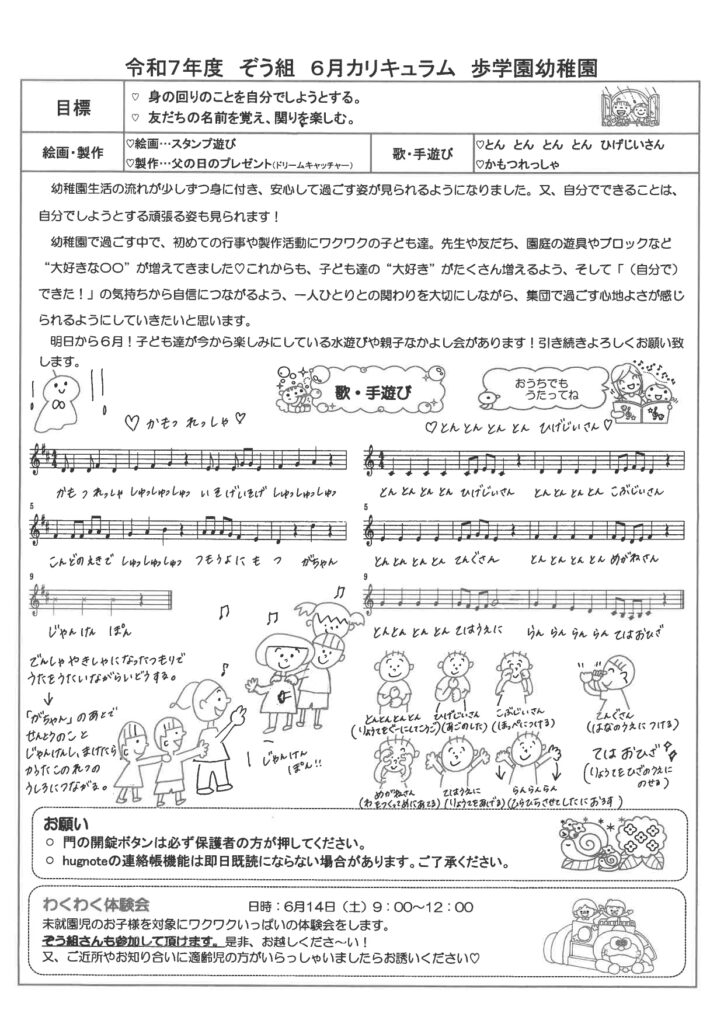 令和7年度　ぞう組　6月カリキュラム　歩学園幼稚園
目標
♡ 身の回りのことを自分でしようとする。
♡ 友だちの名前を覚え、関りを楽しむ。
絵画・製作
♡絵画…スタンプ遊び
♡製作…父の日のプレゼント(ドリームキャッチャー)
歌・手遊び
♡とん とん とん とん ひげじいさん
♡かもつれっしゃ
幼稚園生活の流れが少しずつ身に付き、安心して過ごす姿が見られるようになりました。又、自分でできることは、
自分でしようとする頑張る姿も見られます！
幼稚園で過ごす中で、初めての行事や製作活動にワクワクの子ども達。先生や友だち、園庭の遊具やブロックなど
“大好きな〇〇” が増えてきました♡これからも、子ども達の “大好き” がたくさん増えるよう、そして「（自分で）
できた！」の気持ちから自信につながるよう、一人ひとりとの関わりを大切にしながら、集団で過ごす心地よさが感じ
られるようにしていきたいと思います。
明日から6月！子ども達が今から楽しみにしている水遊びや親子なかよし会があります！引き続きよろしくお願い致
します。
歌・手遊び
おうちでも
うたってね
♡ かもつ れっしゃ ♡
♡とん とん とん とん ひげじいさん♡
かもつ れっしゃ しゅっしゅっしゅっ いそげいそげ しゅっしゅっしゅっ
とん とん とん とん ひげじいさん とん とん とん とん こぶじいさん
5
こんどのえきで しゅっしゅっしゅっ つもうよ にもつ がちゃん
5
とん とん とん とん てんぐさん とん とん とん とん めがねさん
9
じゃんけん ぽん
9
とんとん とん とん てはうえに らん らん らん らん てはおひざ
でんしゃやきしゃになったつもりで
うたをうたいながらいどうする。
↓
「がちゃん」のあとで
せんとうのこと
じゃんけんし、まけたら
かったこのれつの
うしろにつながる。
じゃんけん
ぽん!!
とんとんとんとん
(りょうてをぐーにしてとんとん)
ひげじいさん
(あごのした)
こぶじいさん
(ほっぺにつける)
てんぐさん
(はなのうえにつける)
めがねさん
(わをつくってめにあてる)
てはうえに
(りょうてをあげる)
らんらんらん
(ひらひらさせてしたにおろす)
てはおひざ
(りょうてをひざのうえに
のせる)
お願い
○ 門の開錠ボタンは必ず保護者の方が押してください。
○ hugnoteの連絡帳機能は即日既読にならない場合があります。ご了承ください。
わくわく体験会　日時：6月14日（土）9：00～12：00
未就園児のお子様を対象にワクワクいっぱいの体験会をします。
ぞう組さんも参加して頂けます。是非、お越しくださ～い！
又、ご近所やお知り合いに適齢児の方がいらっしゃいましたらお誘いください♡